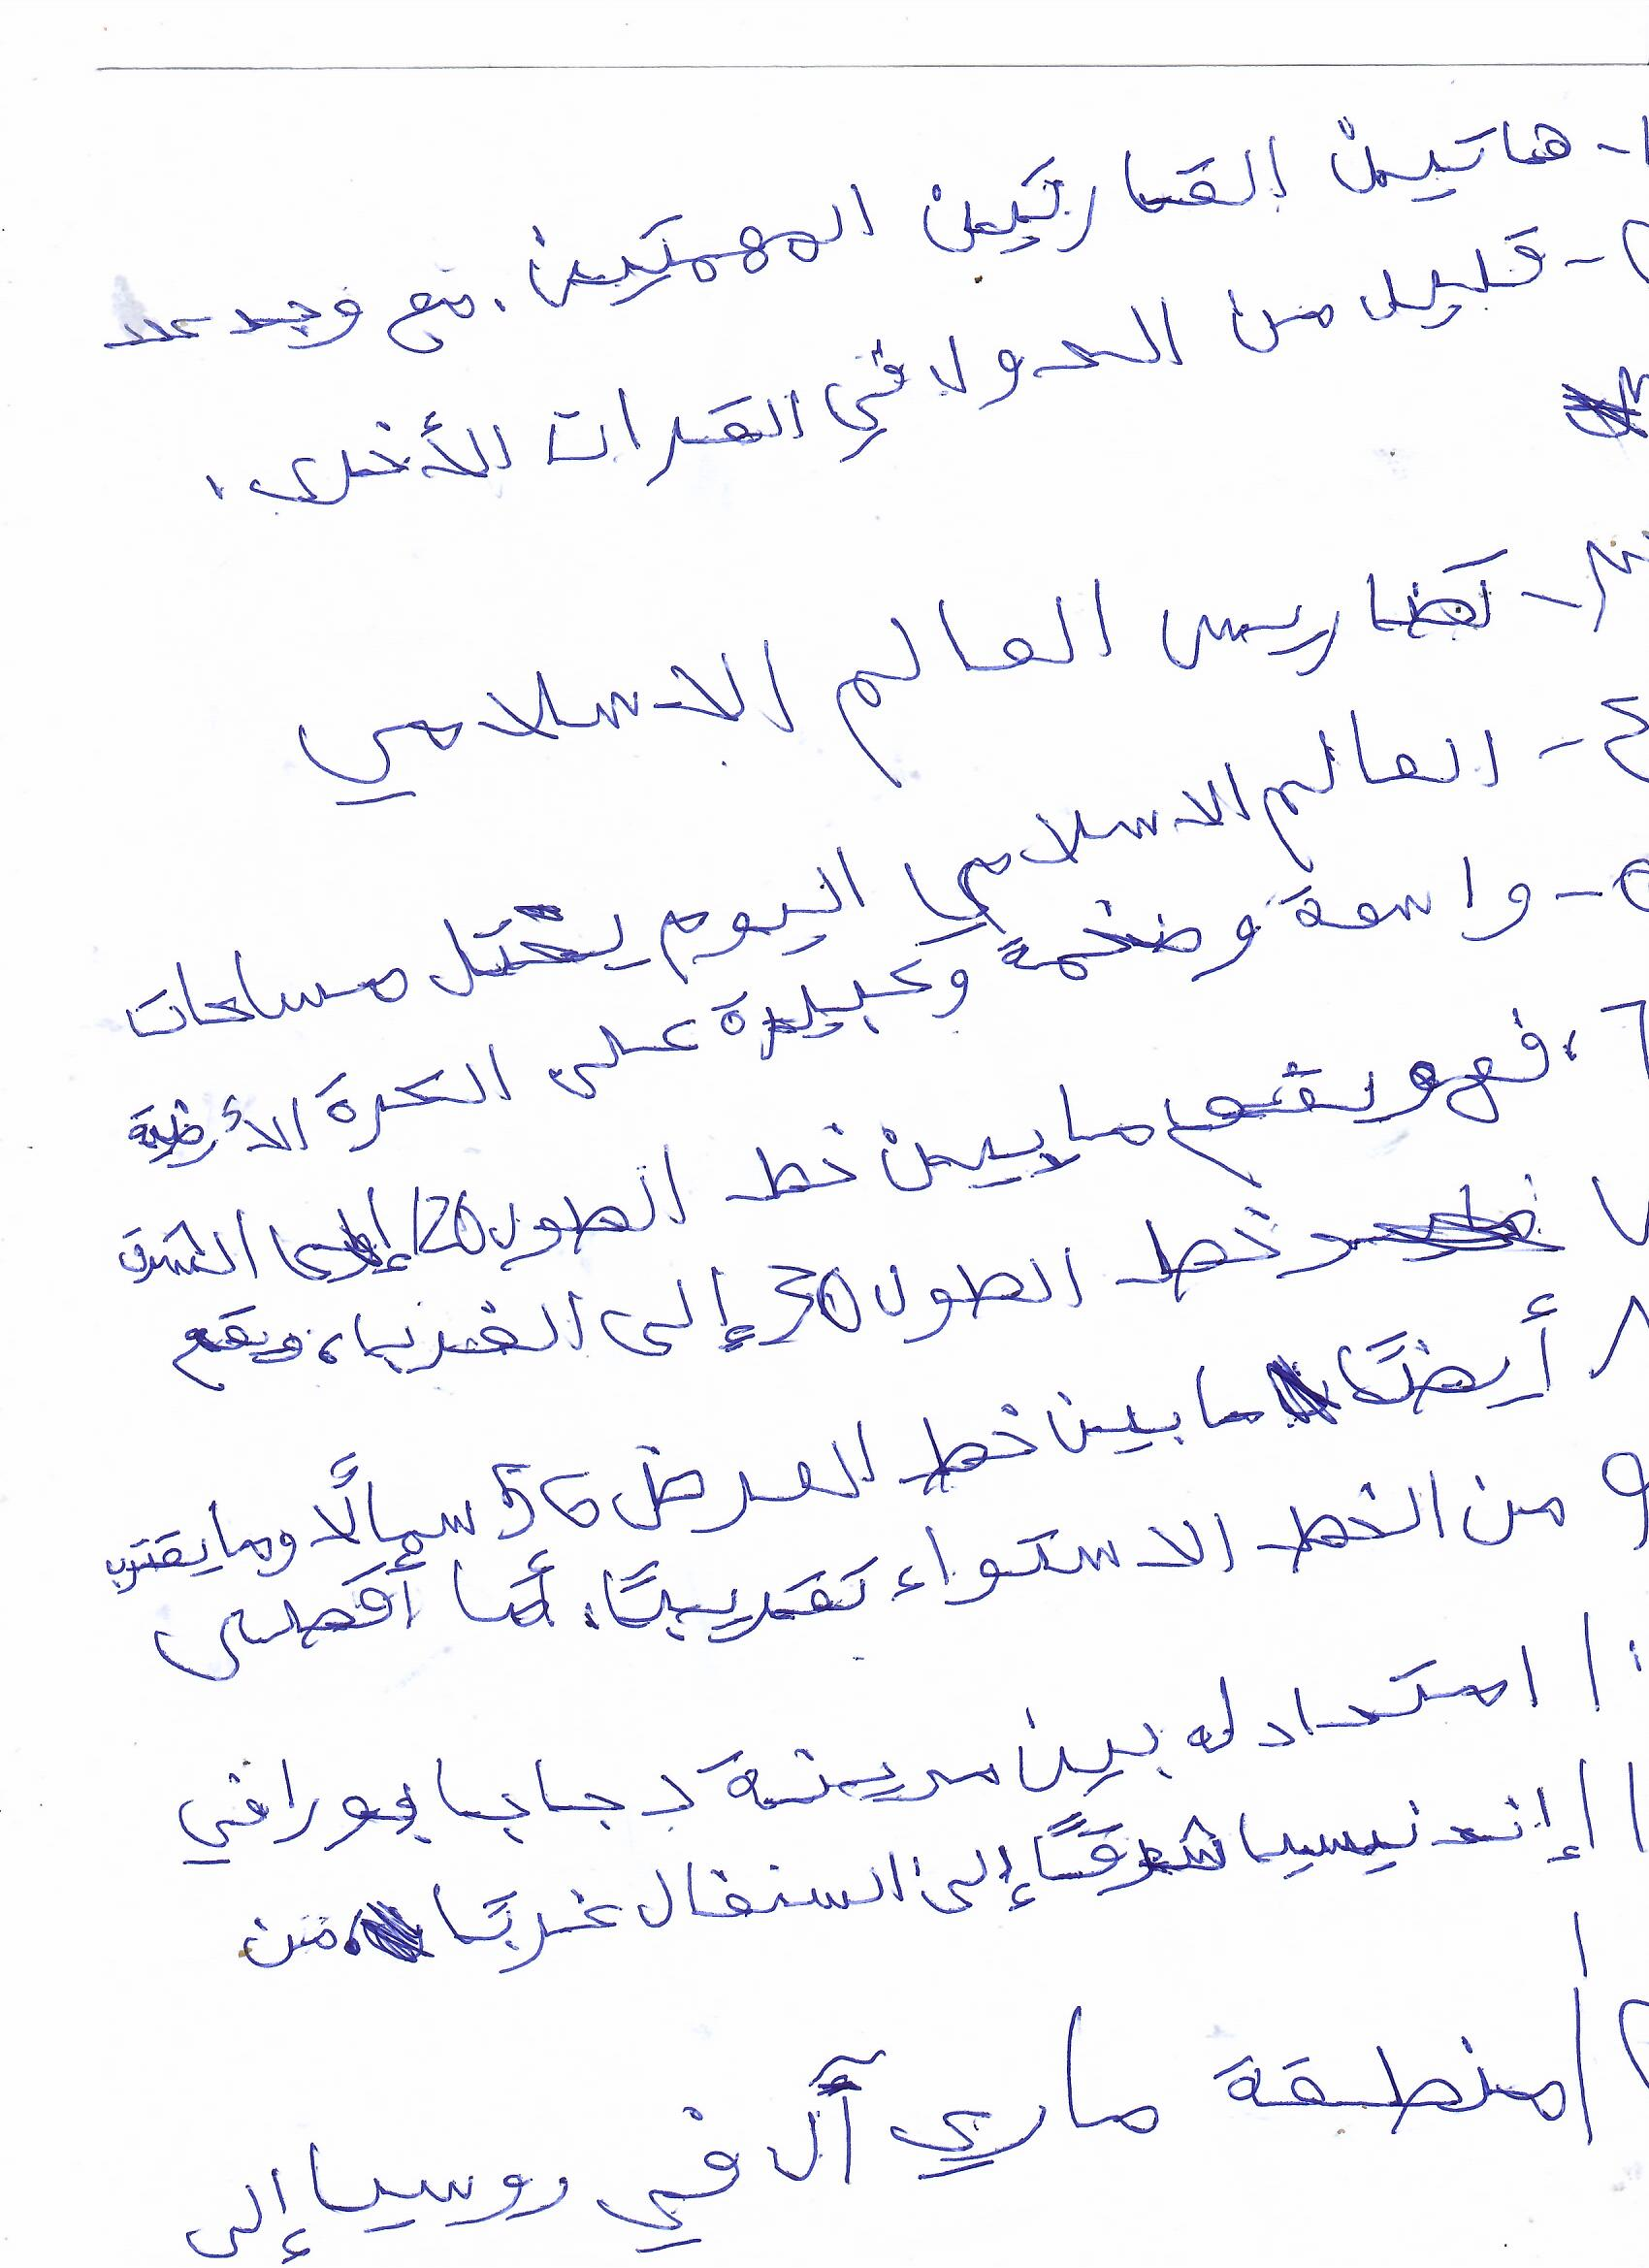 ١- هاتين القارتين المهمتين. مع وجد عدد
٢- قليل من الدول في القرات الأخرى.
٣- تضاريس العالم الاسلامي
٤- العالم الاسلامي اليوم يحتل مساحات
٥- واسعة وضخمة وكبيرة على الكرة الأرضية
٦، فهو يقع ما بين خط الطول 120 إلى الشرق
٧ وخط الطول 30 إلى الغرب، ويقع
٨ أيضًا ما بين خط العرض 56 سمالًا وما يقترب
٩ من الخط الاستواء تقريبًا. أما أقصى
١٠ امتداد له بين مدينة دجابا بورا في
١١ إندنيسيا شرقًا إلى السنغال غربًا، من
١٢ منطقة ماري آل في روسيا إلى